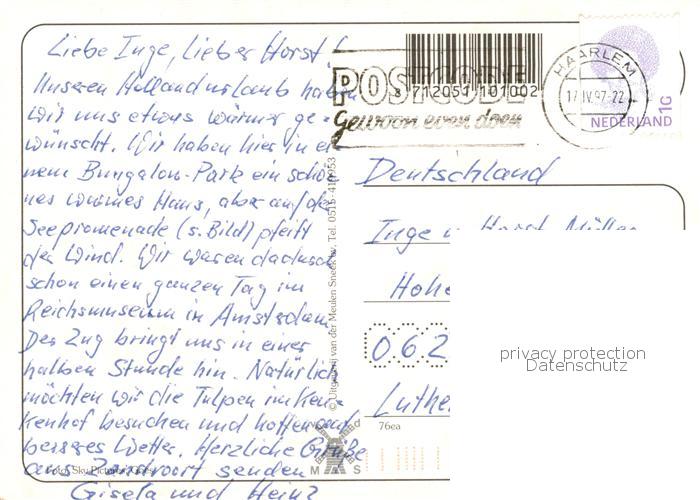 Liebe Inge, lieber Horst!
Unseren Hollandurlaub haben
wir uns etwas wärmer ge-
wünscht. Wir haben hier in ei
nem Bungalow-Park ein schö
nes warmes Haus, aber auf der
Seepromenade (s. Bild) pfeift
der Wind. Wir waren dadurch
schon einen ganzen Tag im
Reichsmuseum in Amsterdam.
Der Zug bringt uns in einer
halben Stunde hin. Natürlich
möchten wir die Tulpen im Keu-
kenhof besuchen und hoffen auf
besseres Wetter. Herzliche Grüße
aus Zandvoort senden
Gisela und Heinz
Foto: Sky Pictures
© Uitgeverij van der Meulen Sneek bv, Tel. 0515-
8 712051 101002
POSTCODE
gewoon even doen
HAARLEM
17.IV.97-22
1G
NEDERLAND
Deutschland
Inge u. Horst Müller
Hohe
062
Luthe
76ea
MAS
privacy protection
Datenschutz